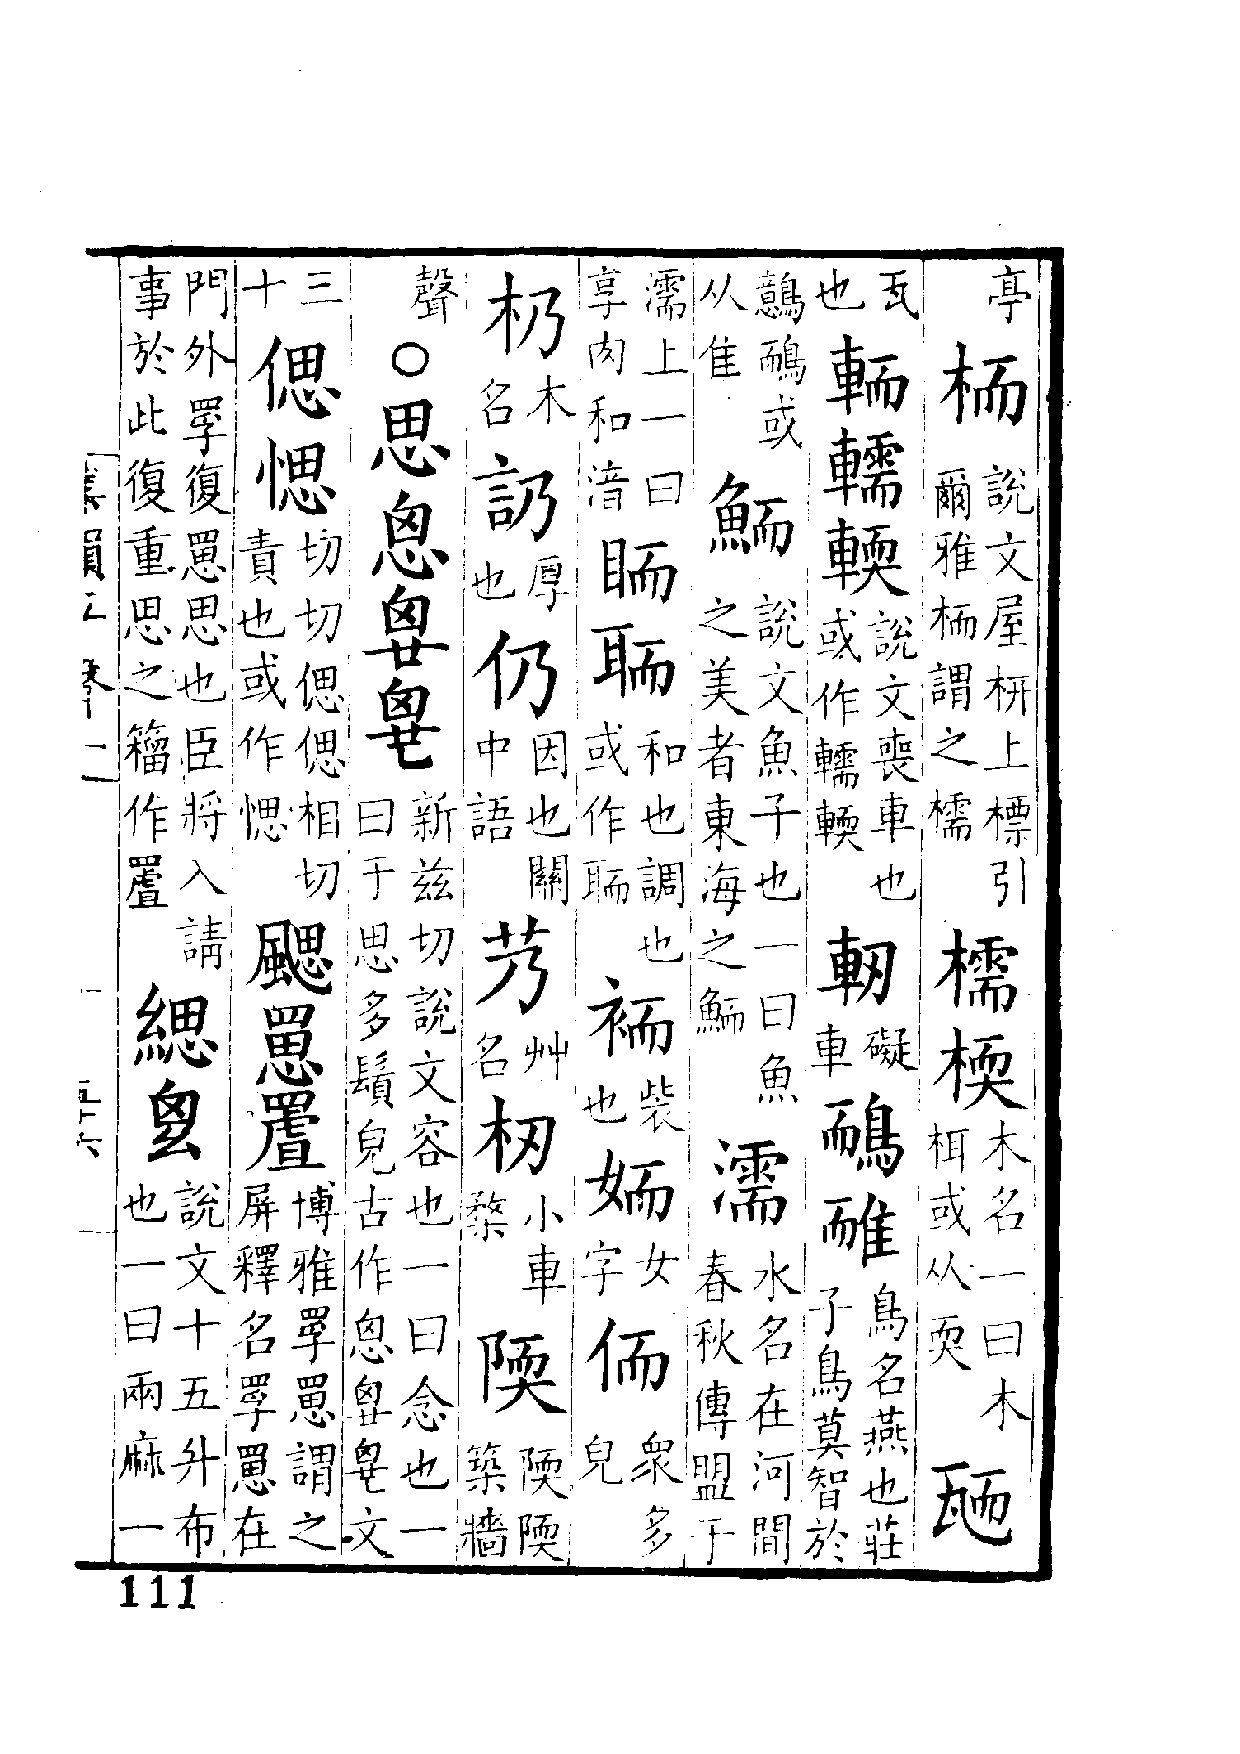 亭栭說文屋枅上標引爾雅栭謂之檽檽檂木名一曰木栮或从耎𤬯
瓦也輀轜䡘說文喪車也或作轜䡘軔礙車鴯䎡鳥名燕也莊子鳥莫智於
鷾鴯或从隹鮞說文魚子也一曰魚之美者東海之鮞濡水名在河間春秋傳盟于
濡上一曰享肉和湇眲聏和也調也或作聏袻裝也姉女字侕衆多皃
杒木名訒厚也仍因也關中語芿艸名杒小車楘陾陾陾築牆
聲○思恖𠕵新兹切說文容也一曰念也一曰于思多鬚皃古作恖文
三十偲愢切切偲偲相切責也或作愢颸罳博雅罘罳謂之屏釋名罘罳在
門外罘復罳思也臣將入請事於此復重思之籀作緦說文十五升布也一曰兩麻一
集韻二
五十六
111